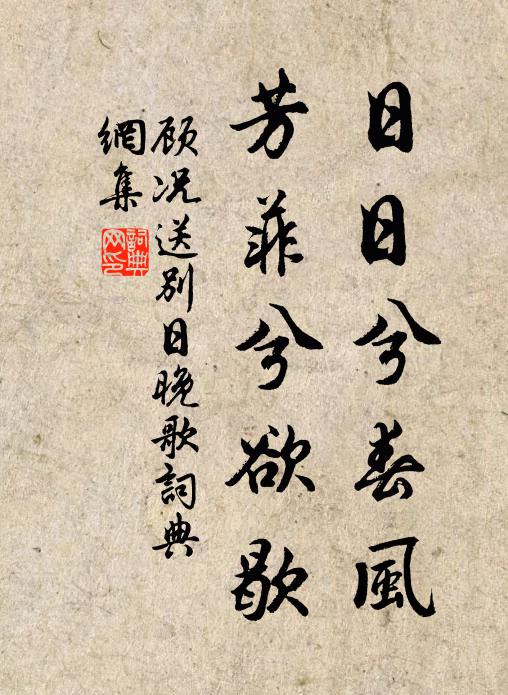 日日兮春風
芳菲兮欲歇
顾况送别日晚歌詞典
網集
詞典
网印